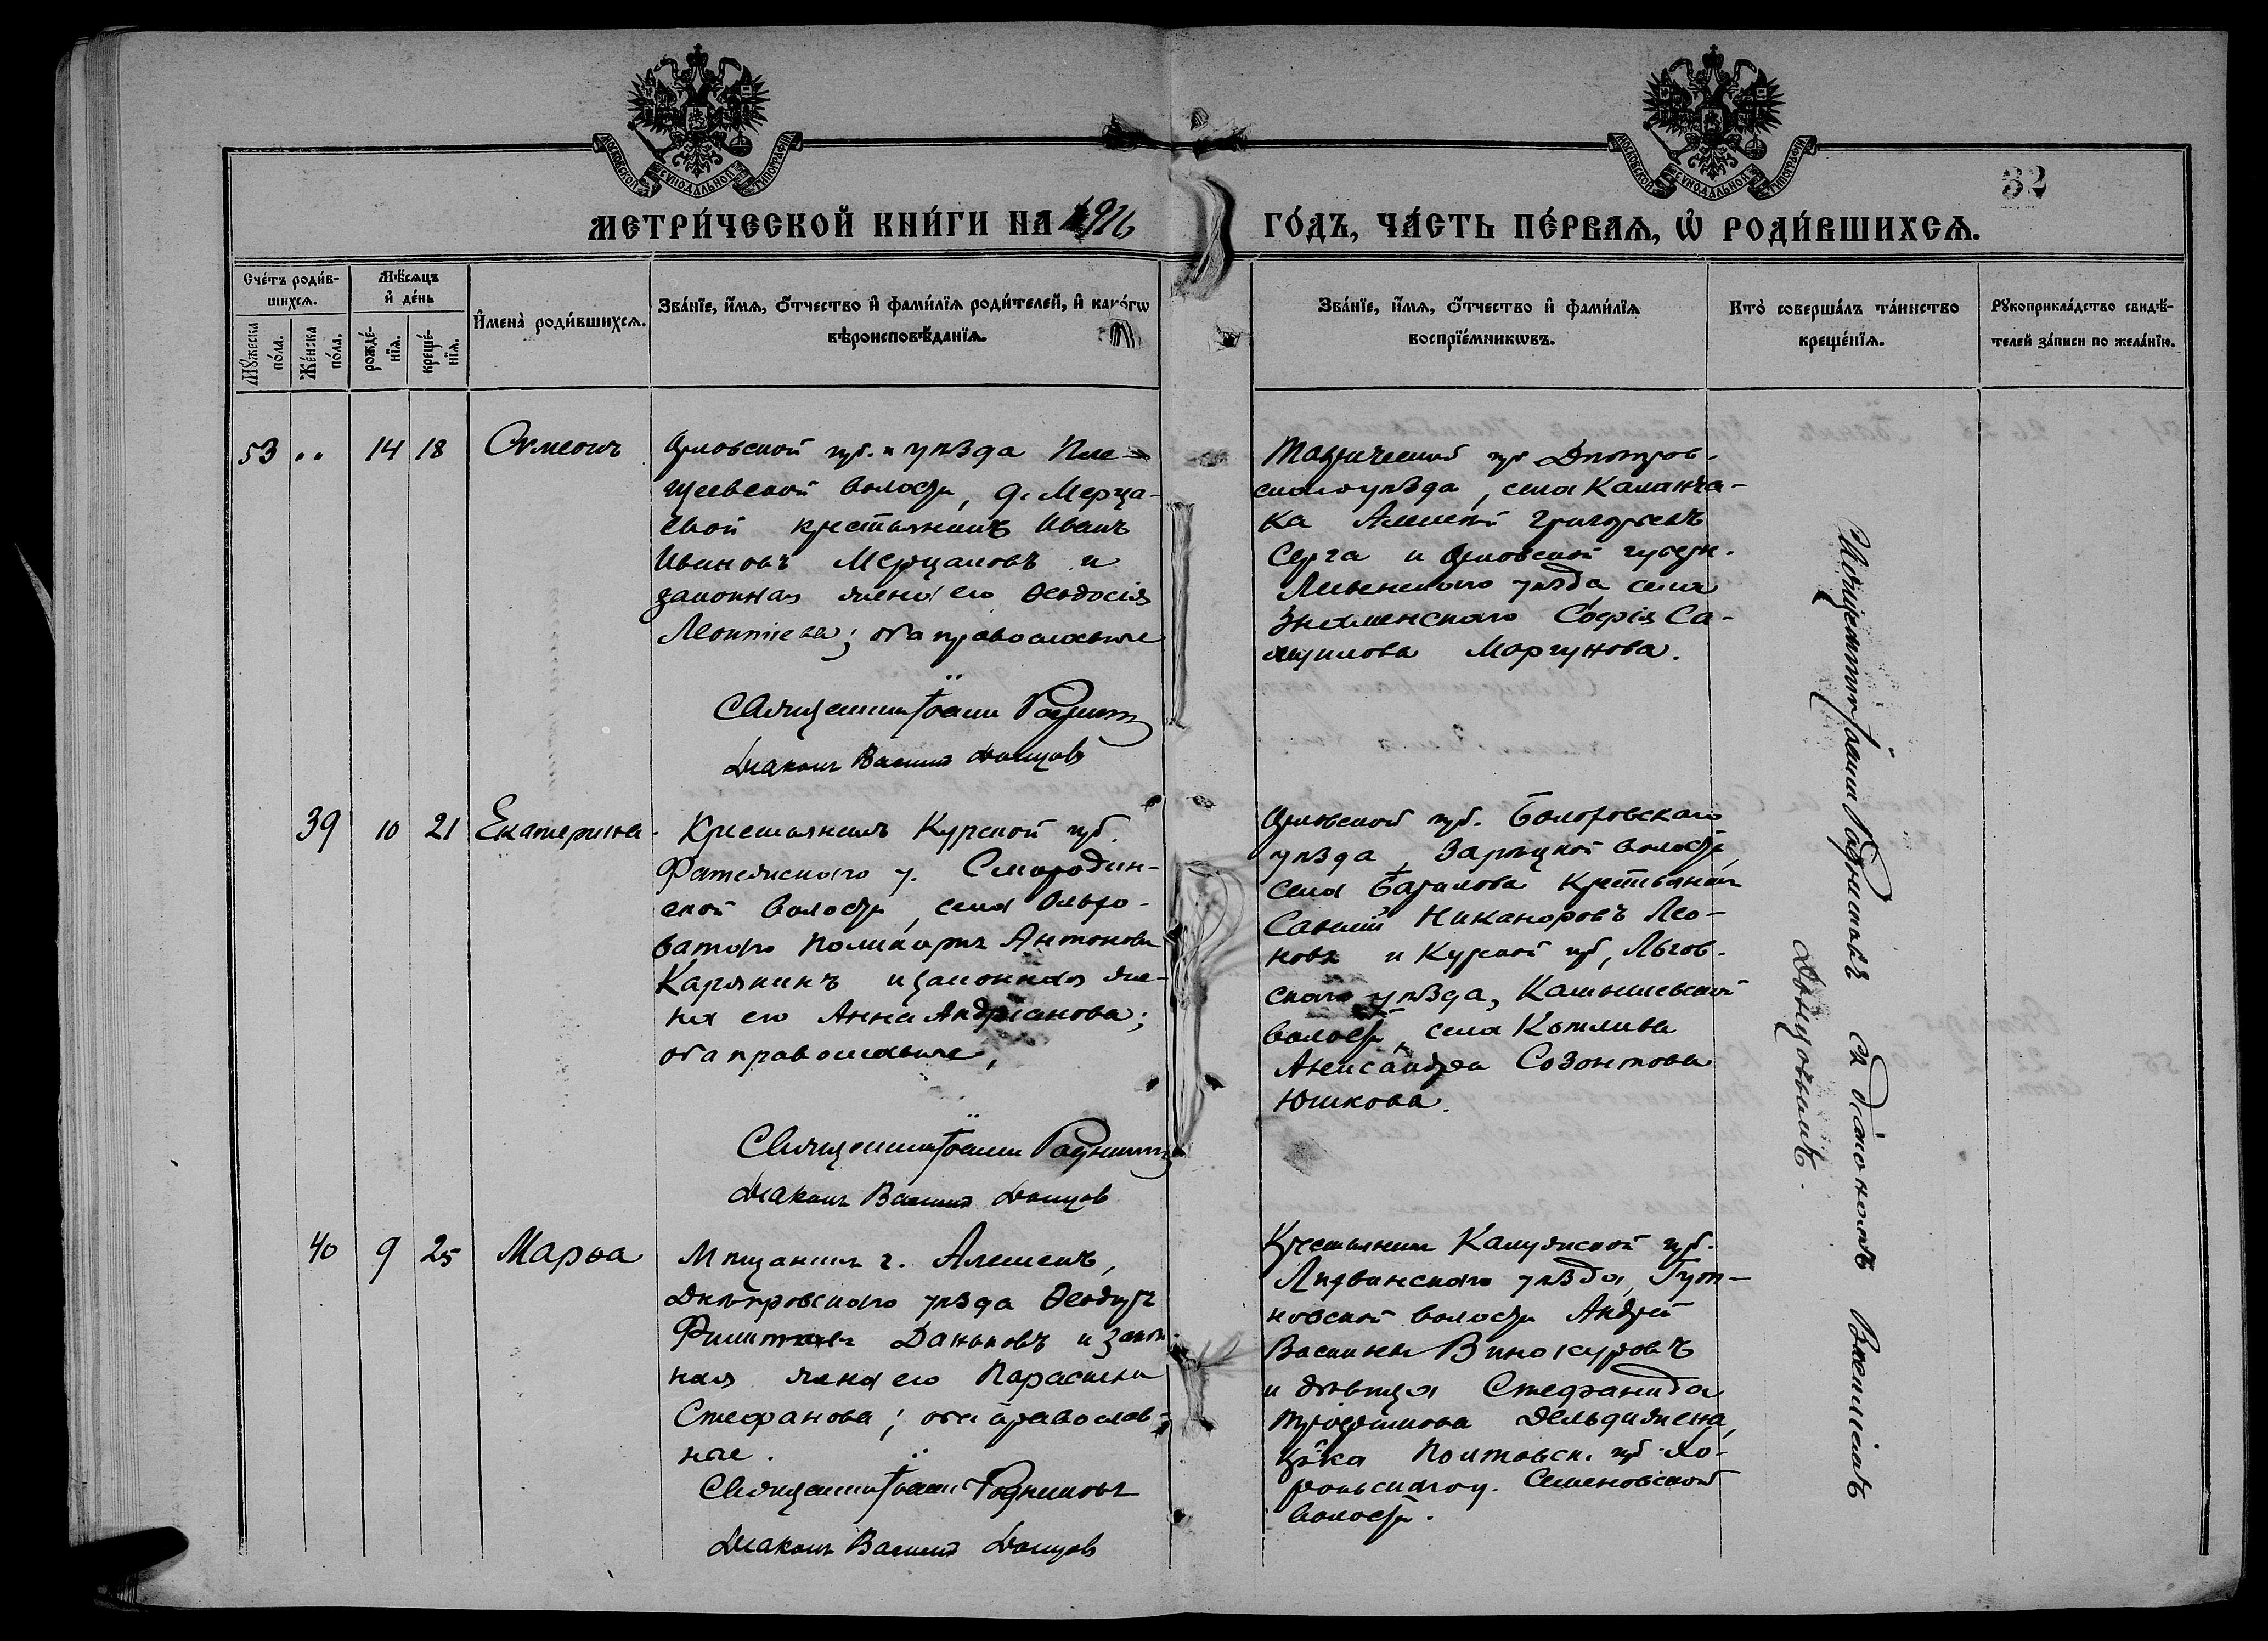 МОСКОВСКОЙ СУНОДАЛЬНОЙ ТИПОГРАФІИ
МОСКОВСКОЙ СУНОДАЛЬНОЙ ТИПОГРАФІИ
32
МЕТРИ́ЧЕСКОЙ КНИ́ГИ НА 1916
ГО́ДЪ, ЧА́СТЬ ПЕ́РВАѦ, Ѡ҆ РОДИ́ВШИХСѦ.
Сче́тъ роди́в-
шихсѧ.
Мѣ́сѧцъ
и҆ де́нь
И҆мена̀ роди́вшихсѧ.
Зва́нїе, и҆́мѧ, ѻ҆́тчество и҆ фами́лїѧ роди́телей, и҆ како́гѡ
вѣроисповѣ́данїѧ.
Мꙋ́жеска
по́ла.
Же́нска
по́ла.
рожде́-
нїѧ.
креще́-
нїѧ.
Зва́нїе, и҆́мѧ, ѻ҆́тчество и҆ фами́лїѧ
воспрїе́мникѡвъ.
Кто̀ соверша́лъ та́инство
креще́нїѧ.
Рꙋкоприкла́дство свидѣ́-
телей за́писи по жела́нїю.
53 " 14 18 Симеонъ
Орловской губ. и уѣзда Пле-
щеевской волости, д. Мерца-
евой крестьянинъ Иванъ
Ивановъ Мерцаловъ и
законная жена его Ѳеодосія
Леонтіева; оба православные
Священникъ Іоаннъ Родниковъ
Діаконъ Василій Донцовъ
Таврической губ Днѣпров-
скаго уѣзда, села Каланча-
ка Алексѣй Григорьевъ
Серга и Орловской губерн.
Ливенскаго уѣзда, села
Знаменскаго Софія Са-
муилова Моргунова.
39 10 21 Екатерина
Крестьянинъ Курской губ.
Фатежскаго у. Смородин-
ской волости, села Ольхо-
ватаго Поликарпъ Антоновъ
Карякинъ и законная же-
на его Анна Андріанова;
оба православные,
Священникъ Іоаннъ Родниковъ
Діаконъ Василій Донцовъ
Орловской губ. Болховскаго
уѣзда, Зарѣцкой волости,
села Багилова крестьянинъ
Савелій Никаноровъ Лео-
новъ и Курской губ, Льгов-
скаго уѣзда, Камышевской
волости, села Котлива
Александра Созонтова
Юшкова.
40 9 25 Марѳа
Мѣщанинъ г. Алешекъ,
Днѣпровскаго уѣзда Ѳеодоръ
Филиповъ Даньковъ и закон-
ная жена его Параскева
Стефанова; оба православ-
ные.
Священникъ Іоаннъ Родниковъ
Діаконъ Василій Донцовъ
Крестьянинъ Калужской губ.
Лихвинскаго уѣзда,
новской волости Андрей
Васильевъ Винокуровъ
и дѣвица Стефанида
Трофимова
Полтавск. губ Хо-
рольскаго у. Семеновской
волости.
Священникъ Іоаннъ Родниковъ съ діакономъ Василіемъ
Донцовымъ.